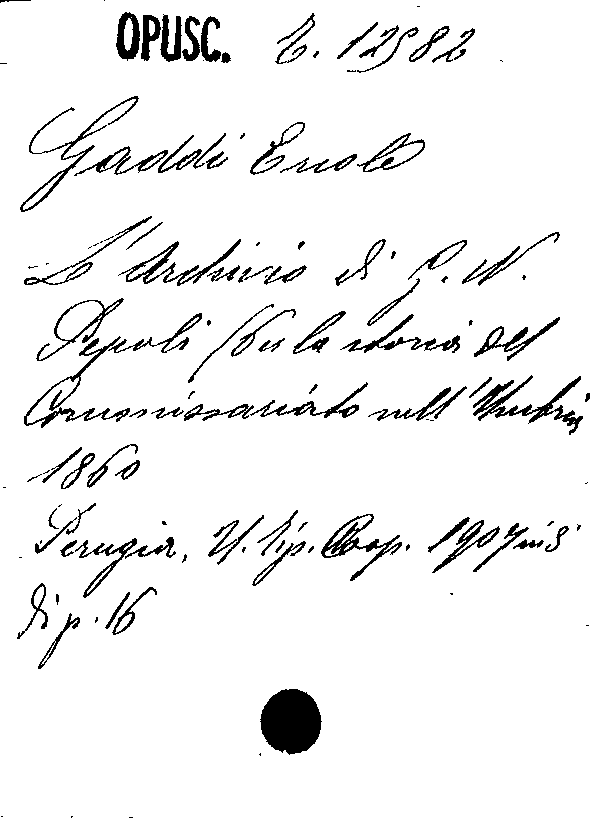 OPUSC. E. 12982
Gaddi Ercole
L'Archivio di G. N.
Pepoli (Per la storia del
Commissariato nell'Umbria
1860
Perugia, U. Tip. Coop. 1907 in 8
di p. 16